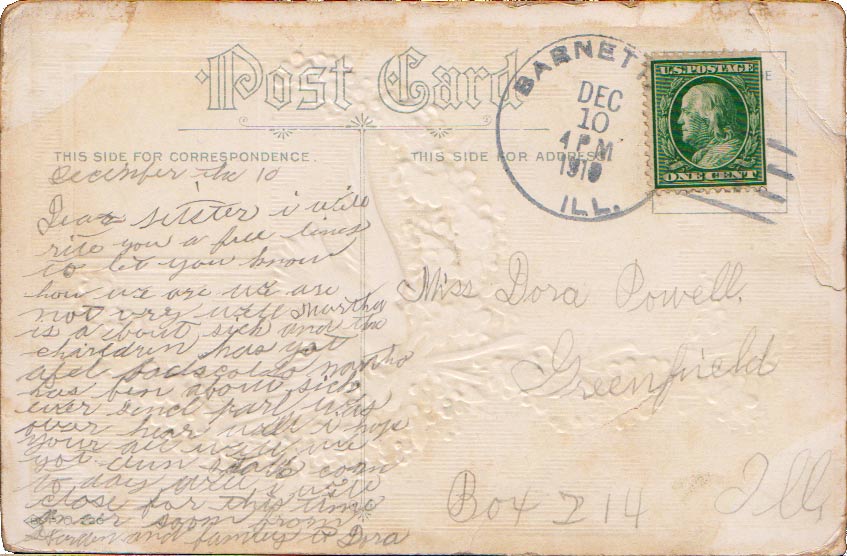 Post Card
THIS SIDE FOR CORRESPONDENCE.
THIS SIDE FOR ADDRESS
BARNETT
DEC
10
4 PM
1910
ILL.
U.S. POSTAGE
ONE CENT
December the 10
Dear sitster i will
rite you a few lines
to let you know
how we are we are
not very well Martha
is a bout sick and the
charldren has got
Martha
has ben about sick
ever sence part was
over hear well i hope
your all well we
got dun corn
to day well i will
close for this time
soon from
and family to Dora
Miss Dora Powell.
Greenfield
Box 214 Ill